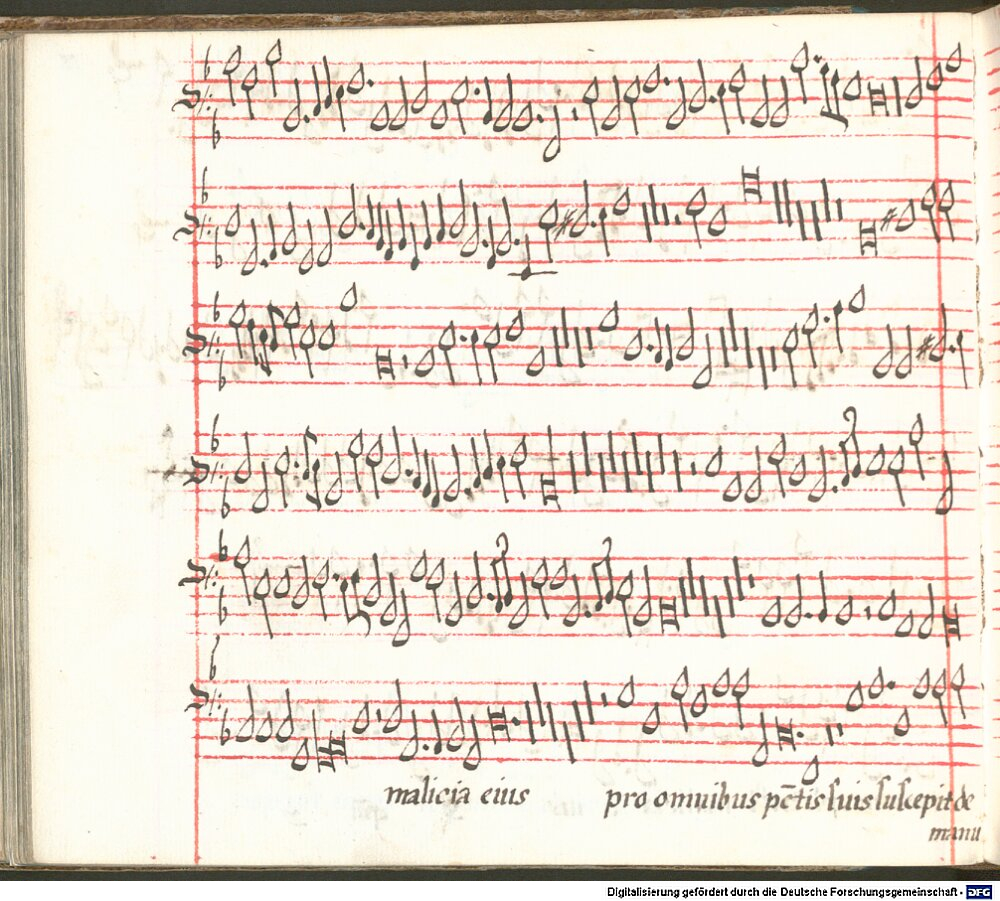 malicia eius pro omnibus pc̄tis suis suscepit de
manu
Digitalisierung gefördert durch die Deutsche Forschungsgemeinschaft - DFG